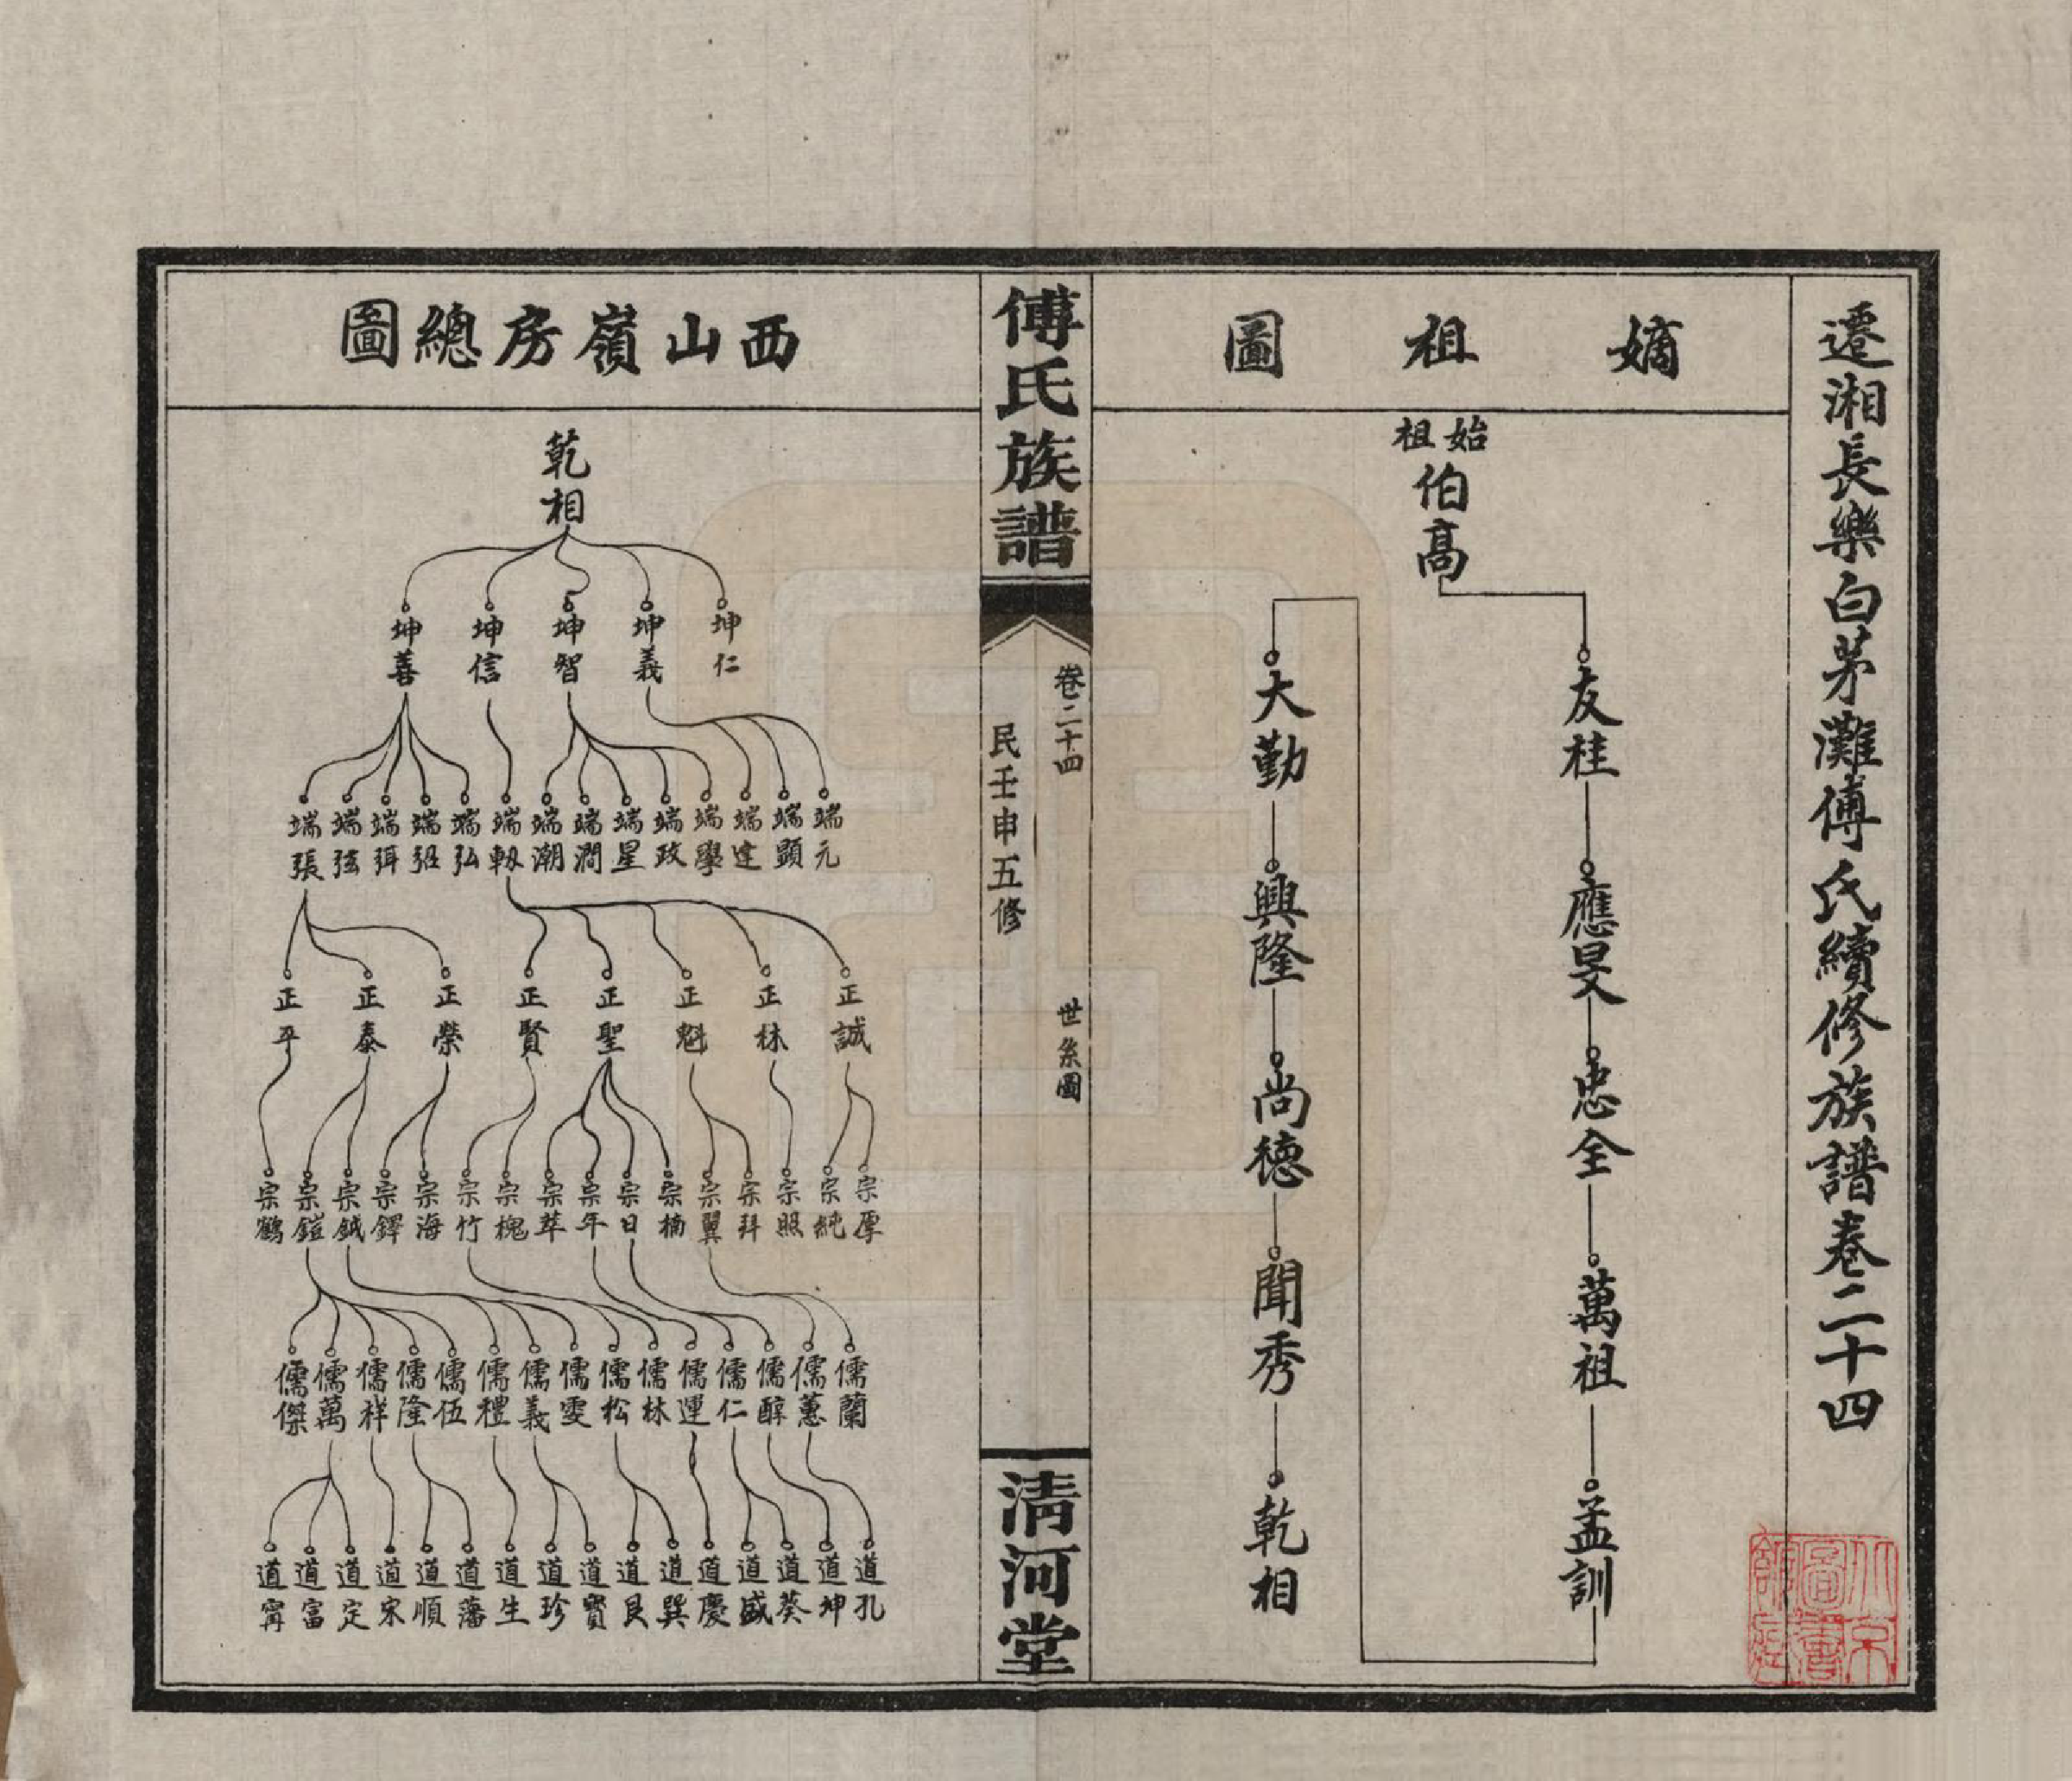 遷湘長樂白茅灘傅氏續修族譜卷二十四
嫡祖圖
始祖
伯高
友桂
應旻
忠全
萬祖
孟訓
大勤
興隆
尚德
聞秀
乾相
傅氏族譜
卷二十四
世系圖
民壬申五修
清河堂
西山嶺房總圖
乾相
坤仁 坤義 坤智 坤信 坤善
端元 端顯 端達 端學 端政 端星 端澗 端潮 端軔 端弘 端弨 端弭 端弦 端張
正誠 正林 正魁 正聖 正賢 正榮 正泰 正平
宗厚 宗純 宗照 宗拜 宗翼 宗楠 宗日 宗年 宗萃 宗槐 宗竹 宗海 宗鐸 宗鉞 宗鎧 宗鶴
儒蘭 儒蕙 儒醇 儒仁 儒運 儒林 儒松 儒雯 儒義 儒禮 儒伍 儒隆 儒祥 儒萬 儒傑
道孔 道坤 道葵 道盛 道慶 道巽 道艮 道寶 道珍 道生 道藩 道順 道宋 道定 道富 道甯
北京圖書館藏